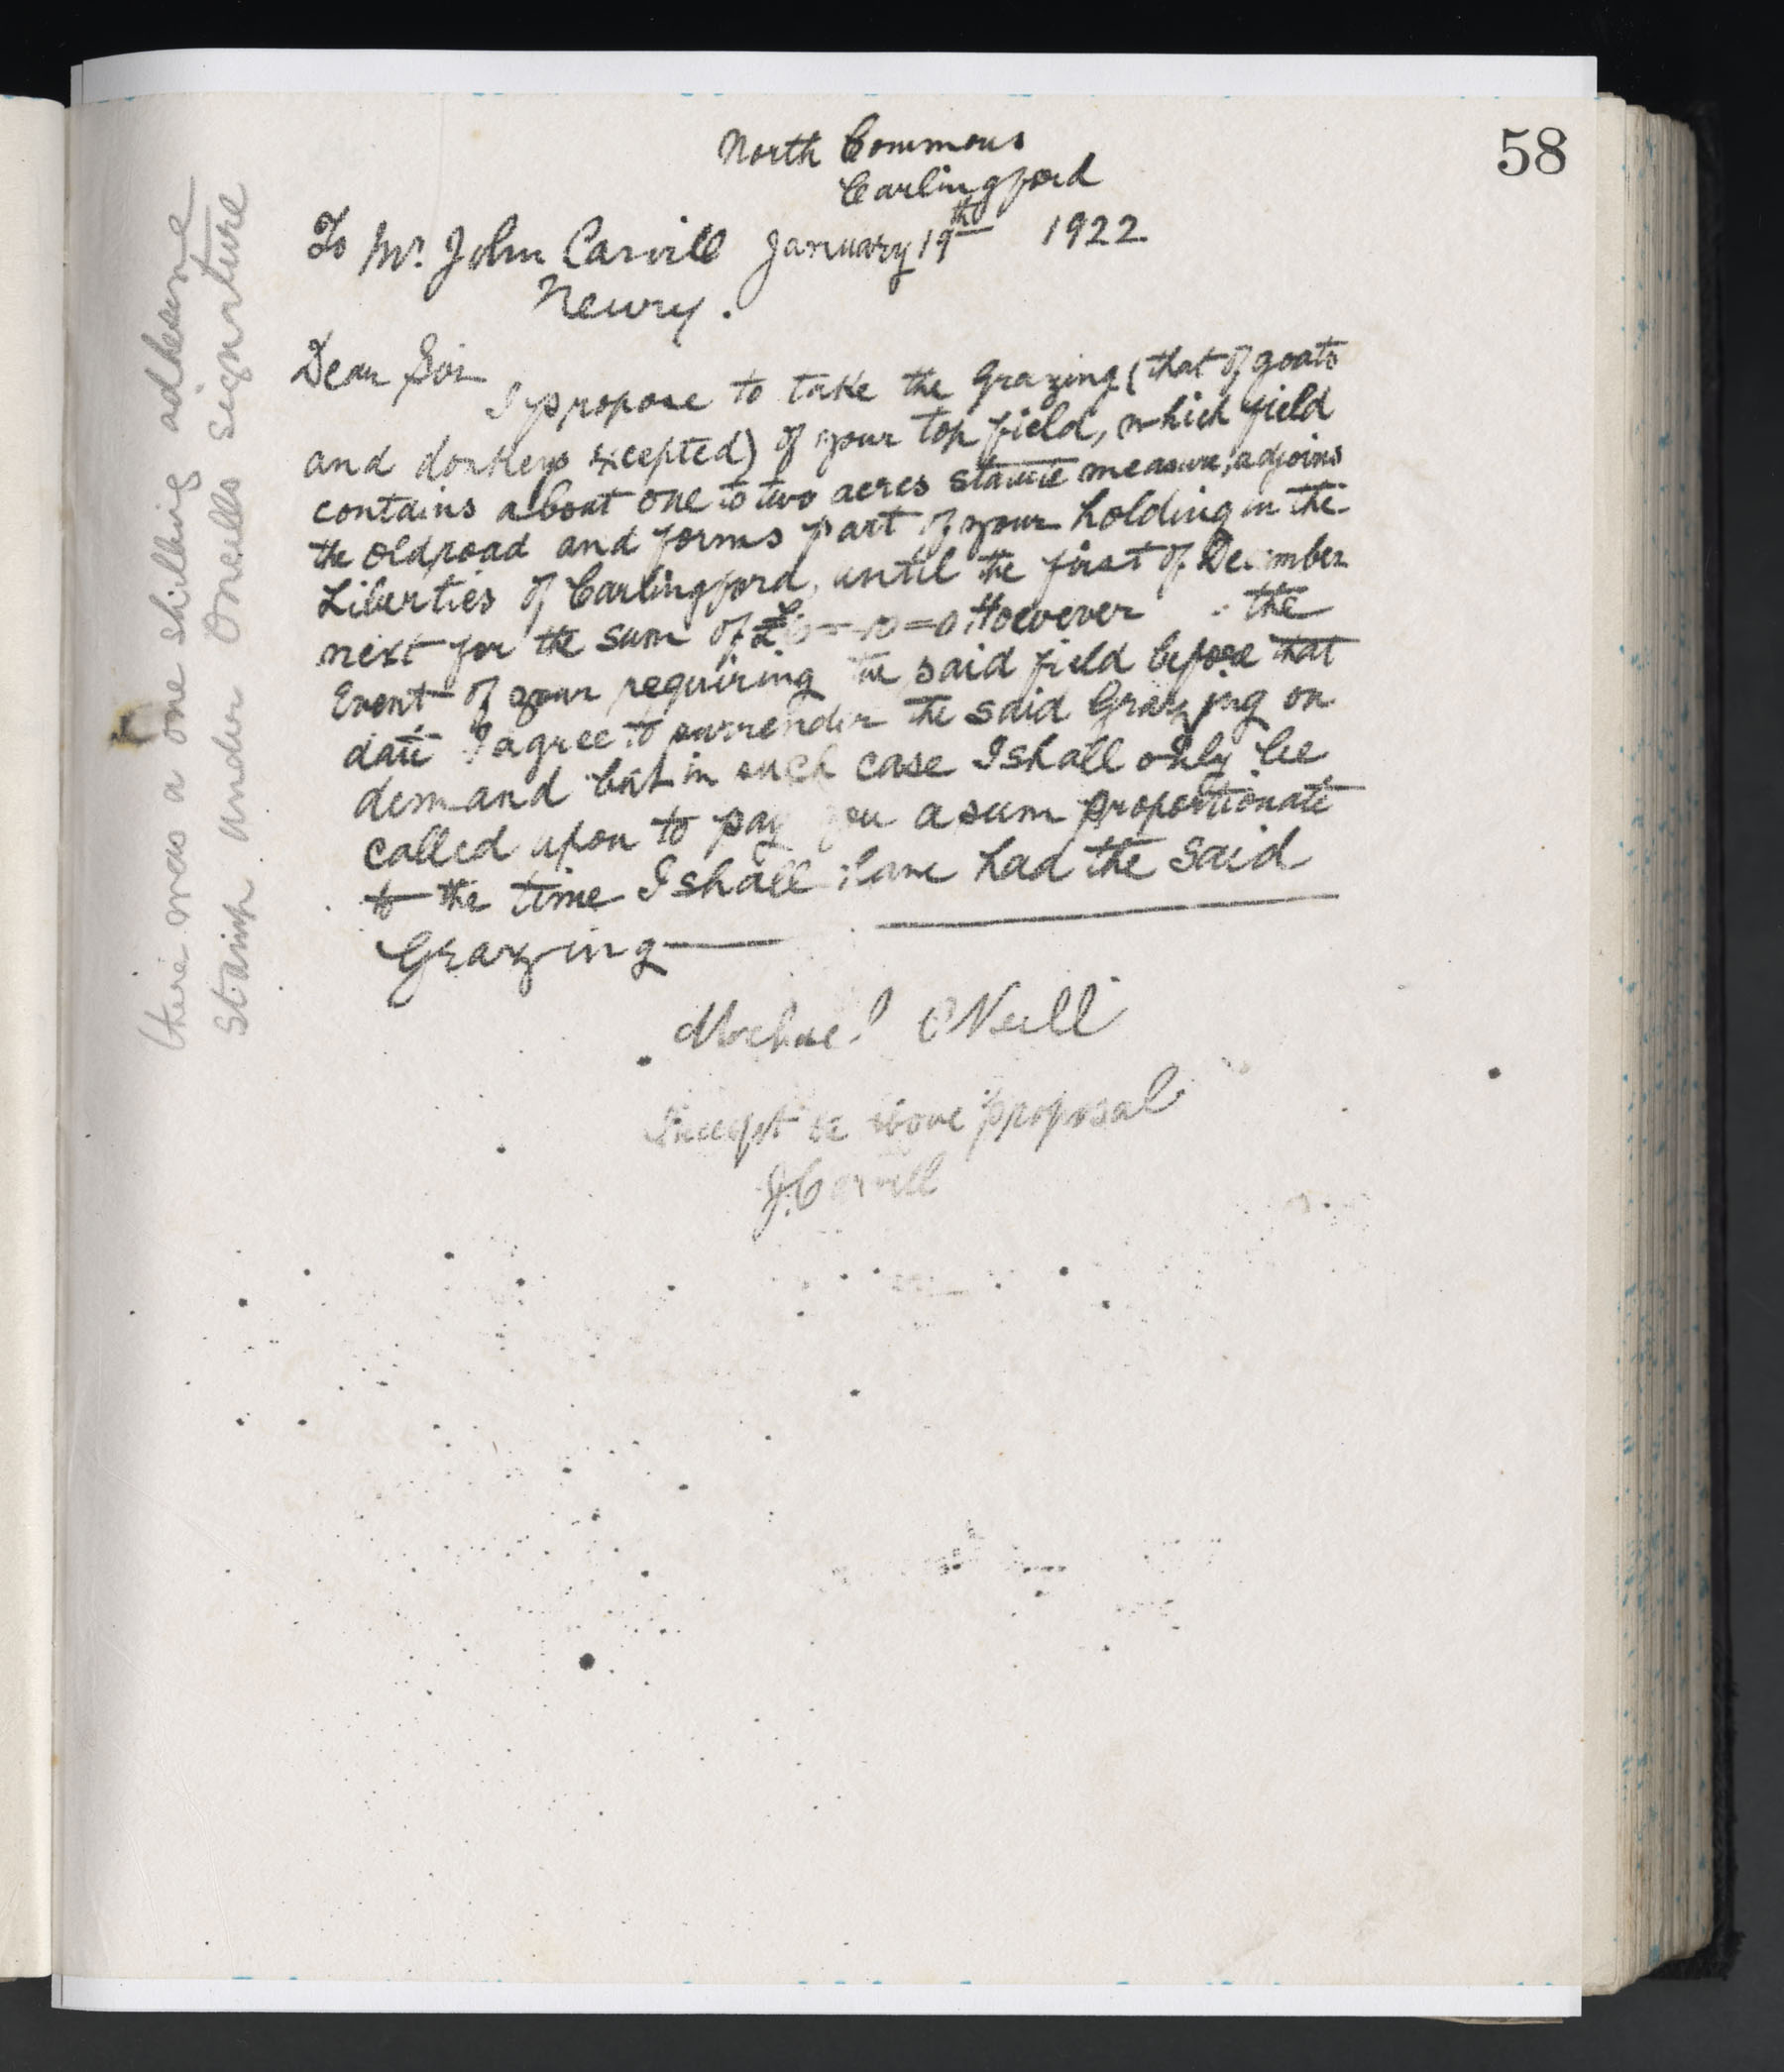 58
North Commons
Carlingford
To Mr. John Carvill January 19th 1922
Newry.
Dear Sir
I propose to take the Grazing (that of goats
and donkeys excepted) of your top field, which field
contains about one to two acres statute measure, adjoins
the old road and forms part of your holding in the
Liberties of Carlingford, until the first of December
next for the sum of £ However the
Event of your requiring the said field before that
date I agree to surrender the said Grazing on
demand but in such case I shall only be
called upon to pay you a sum proportionate
to the time I shall have had the said
Grazing
Michael O'Neill
I accept the above proposal
J. Carvill
there was a one shilling adhesive
stamp under Oneills signature